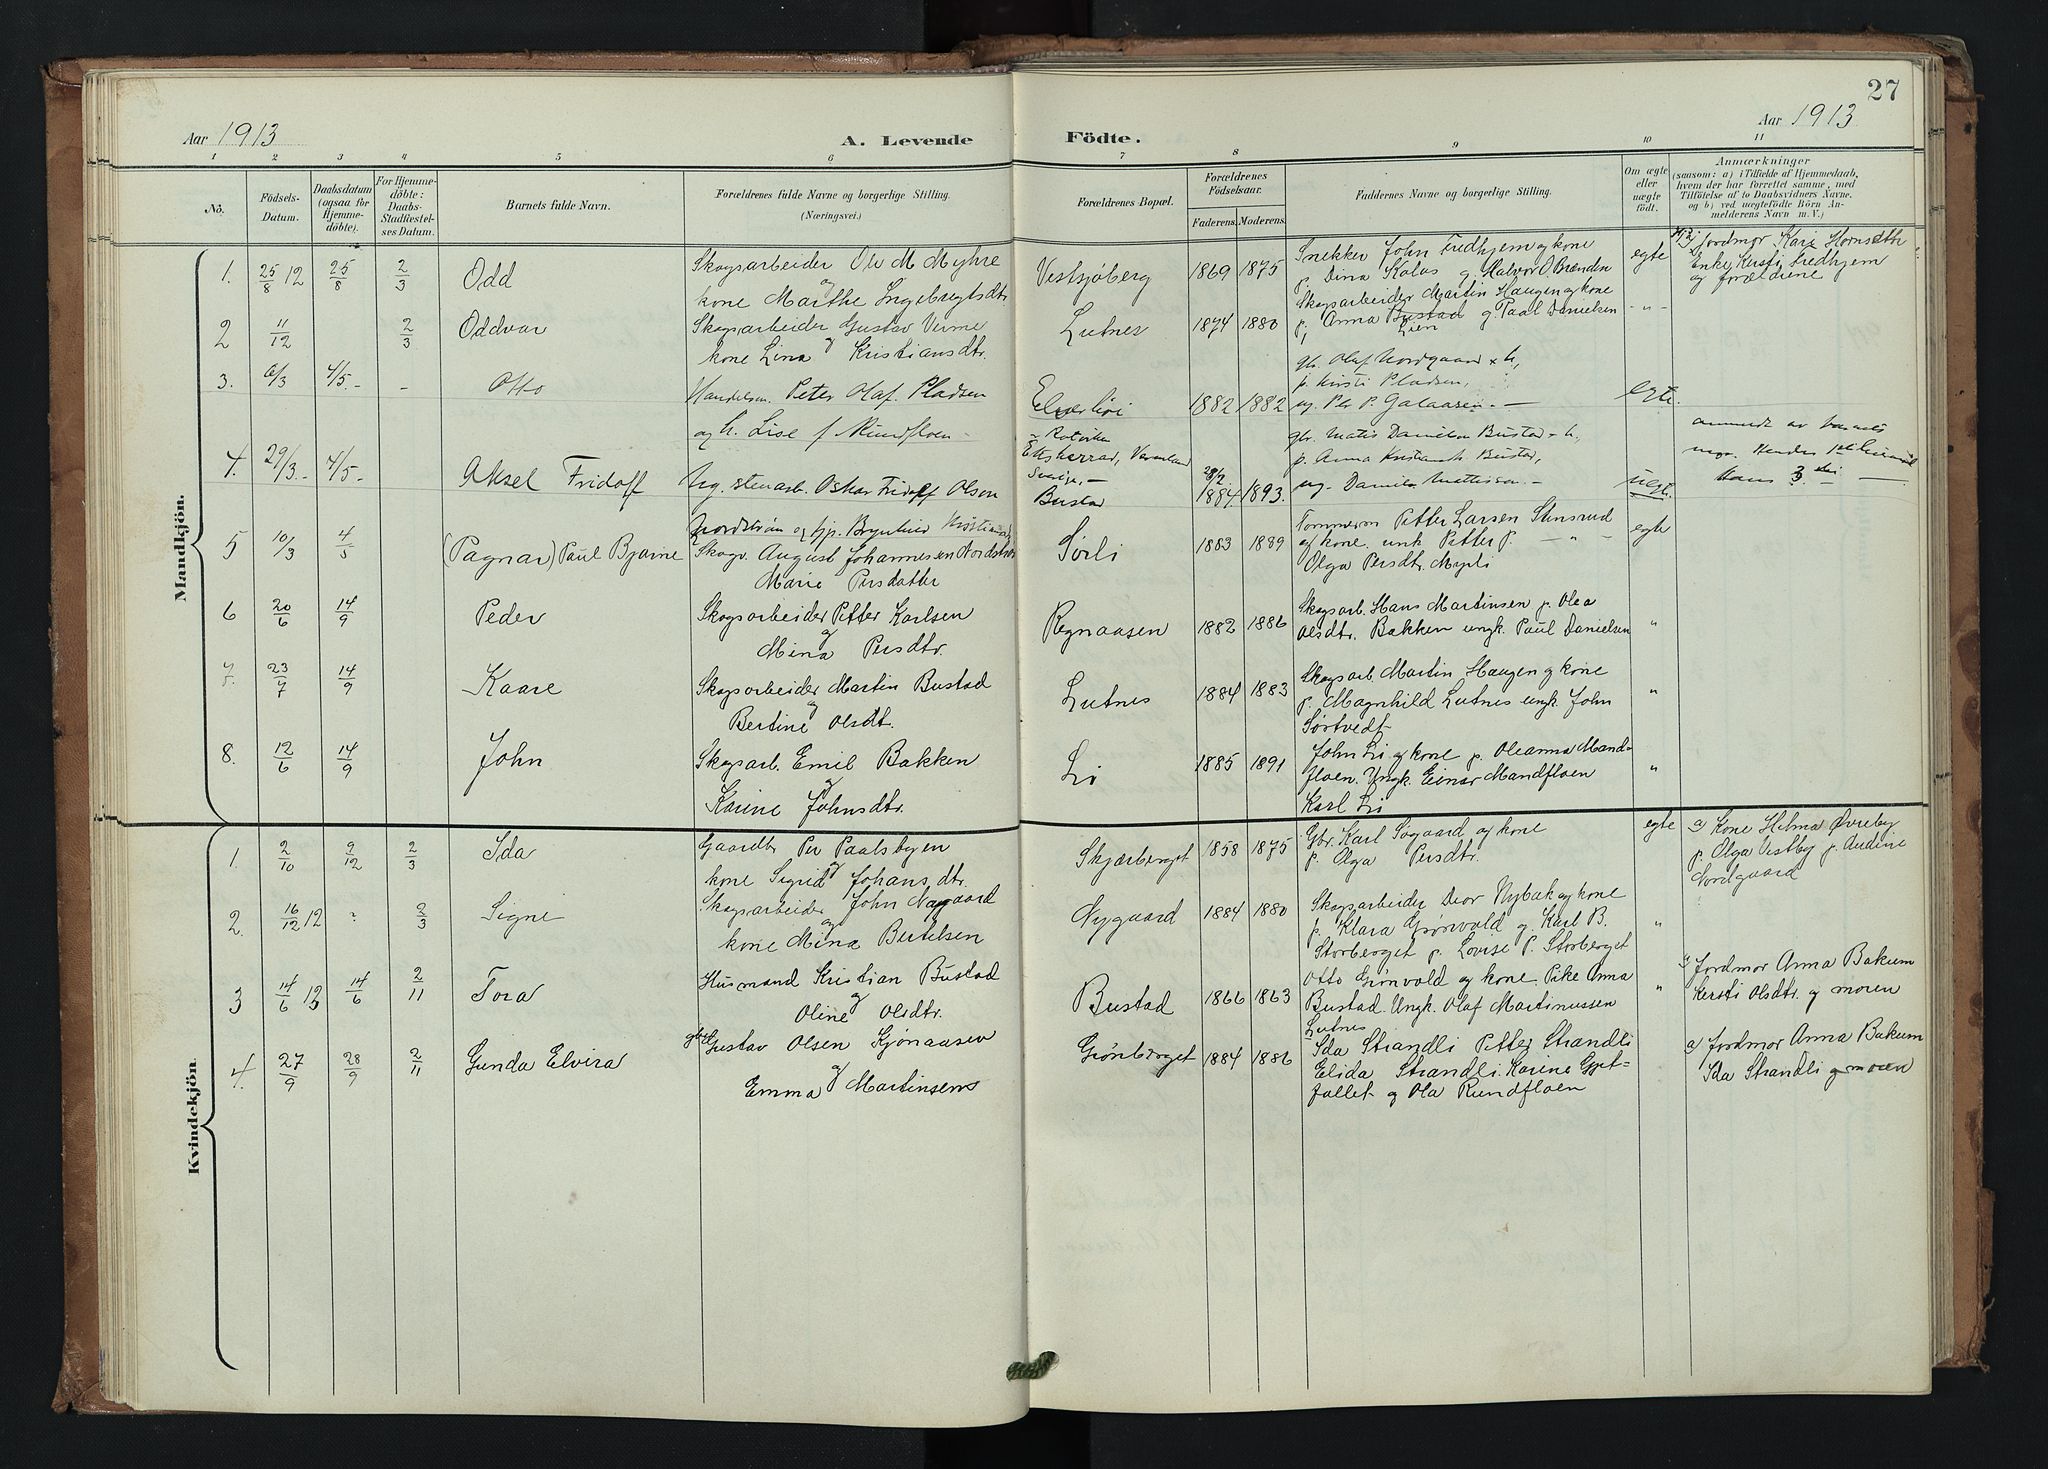 Aar 1913
A. Levende
Födte.
Aar 1913
27
1 2 3 4 5 6 7 8 9 10 11
No.
Födsels-
Datum.
Daabsdatum
(ogsaa for
Hjemme-
döbte).
For Hjemme-
döbte:
Daabs-
Stadfæstel-
ses Datum.
Barnets fulde Navn.
Forældrenes fulde Navne og borgerlige Stilling.
(Næringsvei.)
Forældrenes Bopæl.
Forældrenes
Födselsaar.
Faderens. Moderens.
Faddernes Navne og borgerlige Stilling.
Om ægte
eller
uægte
födt.
Anmærkninger
(saasom: a) i Tilfælde af Hjemmedaab,
hvem der har forrettet samme, med
Tilföielse af to Daabsvidners Navne,
og b) ved uægtefödte Börn An-
melderens Navn m. V.)
Mandkjön.
1. 25/8 12 25/8 2/3 Odd
Skogsarbeider Ole M Myhre
og
kone Marthe Ingebregtsdtr.
Vestsjøberg 1869 1875
Snekker John Fredhjem og kone
p. Dina Kolos g. Halvor O. Brænden
egte
Jordmor Kari Hornseth
Enke Kersti Fredhjem
og forældrene
2 11/12 2/3 Oddvar
Skogsarbeider Gustav Verme
og
kone Lina Kristiansdtr.
Lutnes 1874 1880
Skogsarbeider Martin Haugen og kone
p. Anna Bustad g Paal Danielsen
Lien
- " -
3. 6/3 4/5.- - Otto
Handelsm. Peter Olaf. Pladsen
og h. Lise f Rundfloen -
Elverhøi 1882 1882
gb. Olaf Nordgaard + h,
p. Kirsti Pladsen,
ug. Per P. Galaasen. -
egte.
4. 29/3.- 4/5.- Aksel Fridoff
Ug. stenarb. Oskar Fridolf Olsen
Nordstrøm og pp. Brynhild Kristians
Rotviken
Ekshærrad, Vermland
Sverige, -
Bustad
28/2
1884. 1893.
gbr. Matis Danielsen Bustad + h,
p. Anna Kristiansd. Bustad,
ug. Daniel Mattisen. -
uegt.
anmeldt av barnets
mor. Hendes 1ste leiermaal
Hans 3die -
5 10/3 4/5 (Ragnar) Paul Bjarne
Skogv. August Johannesen Nordstrøm
Marie Persdatter
Sørli 1883 1889
Tømmerm Petter Larsen Stensrud
og kone. unk Petter P. - " -
Olga Persdtr. Myrli
egte
6 20/6 14/9 Peder
Skogsarbeider Petter Karlsen
og
Mina Persdtr.
Regnaasen 1882 1886
Skogsarb. Hans Martinsen p. Olea
Olsdtr. Bakken ungk. Paul Danielsen
"
7. 23/7 14/9 Kaare
Skogsarbeider Martin Bustad
og
Bertine Olsdt.
Lutnes 1884 1883
Skogsarb. Martin Haugen og kone
p. Magnhild Lutnes ungk. John
Sørtvedt
"
8. 12/6 14/9 John
Skogsarb. Emil Bakken
og
Karine Johnsdtr.
Li 1885 1891
John Li og kone p. Oleanna Mand-
floen. Ungk. Einar Mandfloen
Karl Li
"
Kvindekjön.
1. 2/10 9/12 2/3 Ida
Gaardbr Per Paalsbyen
og
kone Sigrid Johansdtr.
Skjærberget 1858 1875
Gbr. Karl Søgaard og kone
p. Olga Persdtr.
egte
a) Kone Helma Øvreby
p. Olga Vestby p. Andine
Nordgaard
2. 16/12 12 ? 2/3 Signe
Skogsarbeider John Nygaard
og
kone Mina Bertelsen
Nygaard 1884 1880
Skogsarbeider Deor Nybak og kone
p. Klara Grønvold g. Karl B.
Storberget p. Lovise P. Storberget
"
3 14/6 13 14/6 2/11 Tora
Husmand Kristian Bustad
og
Oline Olsdtr.
Bustad 1866 1863
Otto Grønvold og kone. Pike Anna
Bustad. Ungk. Olaf Martinussen
Lutnes
"
a) Jordmor Anna Bakum
Kersti Olsdtr. g moren
4. 27/9 28/9 2/11 Gunda Elvira
Gustav Olsen Kjønaasen
og
Emma Martinsens
Grønberget 1884 1886
Ida Strandli Petter Strandli
Elida Strandli. Karine Gjet-
fallet g Ola Rundfloen
a) Jordmor Anna Bakum
Ida Strandli g moren